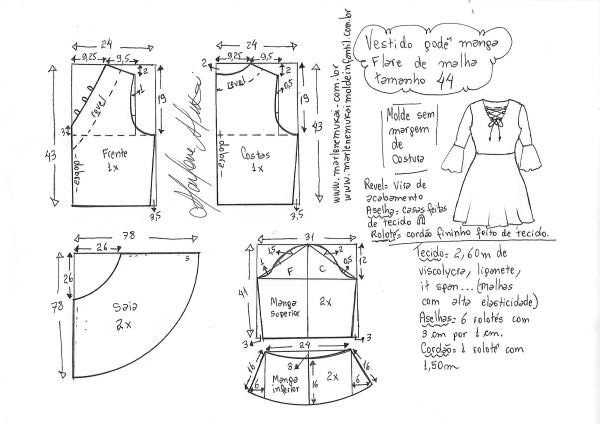 Vestido godê manga
Flare de malha
tamanho 44
24
9,25
9,5
2
1
19
43
3
revel
dobra
Frente
1x
3,5
Marlene Mukai
24
9,25
9,5
2
2
0,5
19
43
revel
dobra
Costas
1x
3,5
www.marlenemukai.com.br
www.marlenemukaimoldeinfantil.com.br
Molde sem
margem
de
Costura
Revel= Vira de
acabamento
Aselha= casas feitas
de tecido
Rolotês cordão fininho feito de tecido.
78
26
26
78
5
Saia
2x
31
1,5
2
1
0,5
12
F
C
41
Manga
superior
2x
3
3
24
16
16
3
16
6
6
Manga
inferior
2x
Tecido= 2,60m de
viscolycra, liganete,
it span... (malhas
com alta elasticidade)
Aselhas= 6 rolotés com
3 cm por 1 cm.
Cordão= 1 roloté com
1,50m